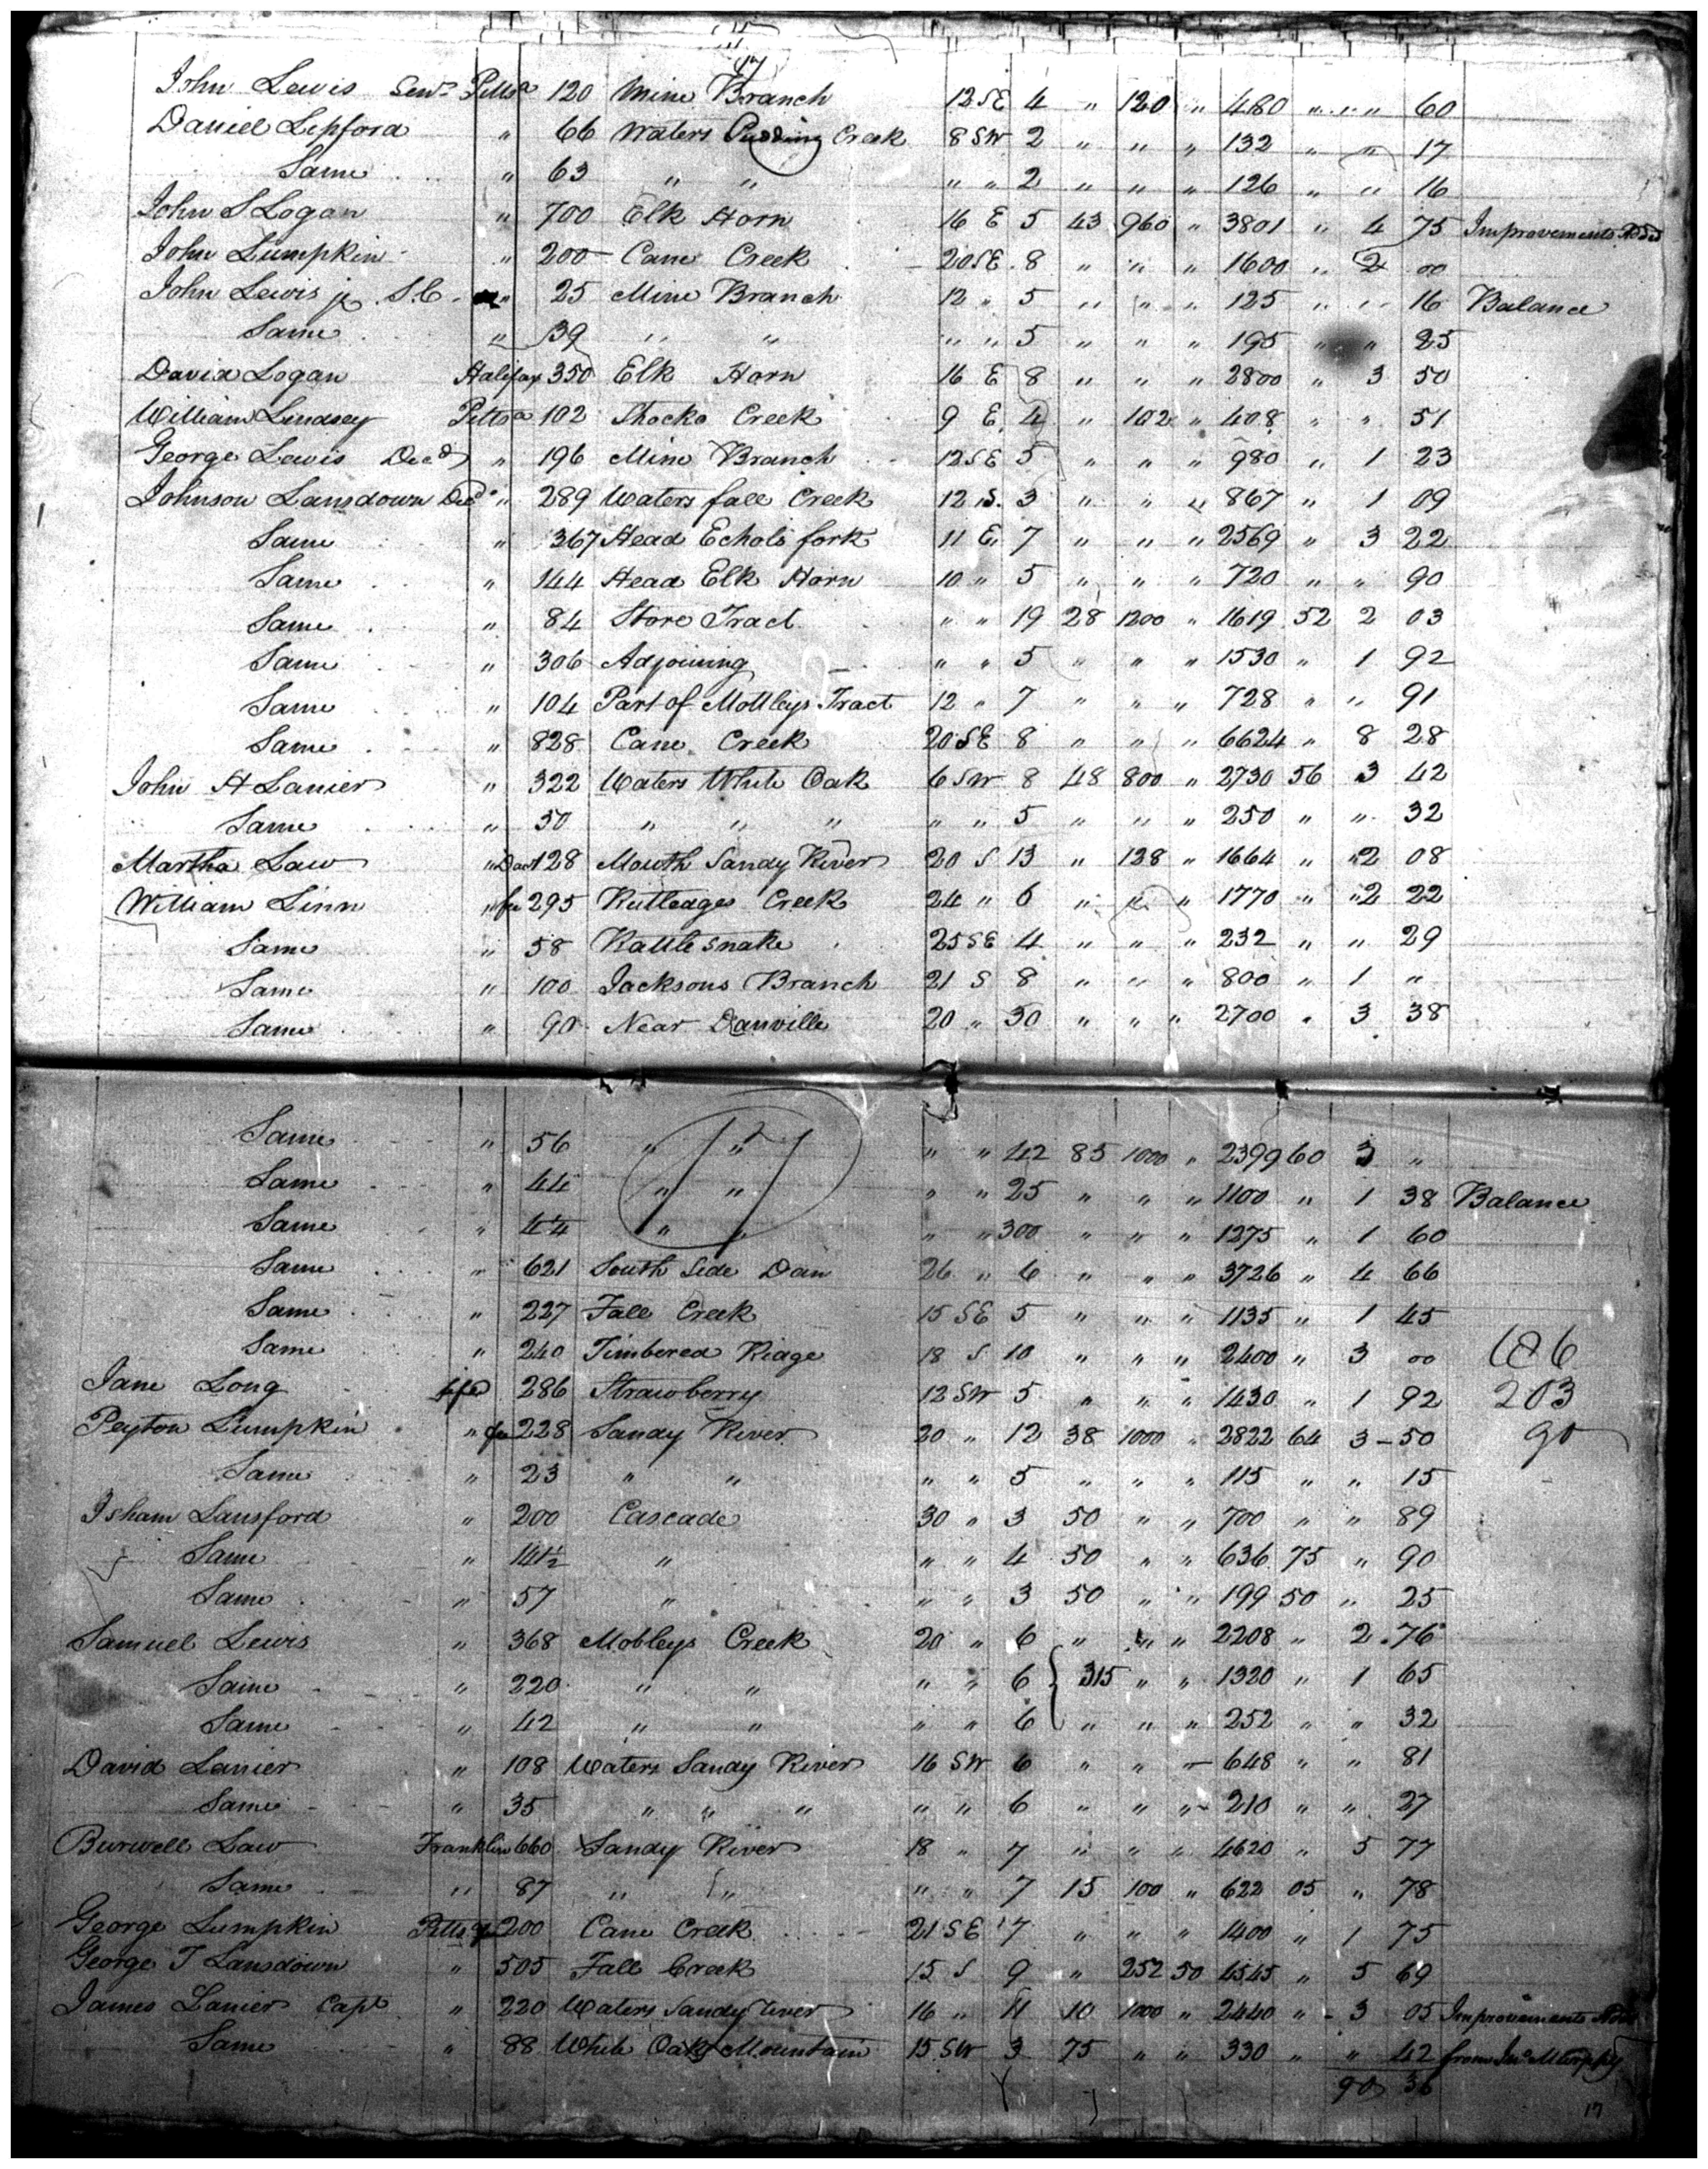 17
John Lewis Senr Pittsa 120 Mine Branch 12 SE 4 " 120 " 480 " " " 60
Daniel Lipford " 66 Waters Pudding Creek 8 SW 2 " " " 132 " " 17
Same " 63 " " " " 2 " " " 126 " " 16
John S Logan " 700 Elk Horn 16 E 5 43 960 " 3801 " 4 75 Improvements Add
John Lumpkin " 200 Cane Creek 20 SE 8 " " " 1600 " 2 00
John Lewis jr S.C. " 25 Mine Branch 12 " 5 " " " 125 " " 16 Balance
Same " 39 " " " " 5 " " " 195 " " 25
David Logan Halifax 350 Elk Horn 16 E 8 " " " 2800 " 3 50
William Lindsey Pittsa 102 Shocko Creek 9 E 4 " 102 " 408 " " 51
George Lewis Decd " 196 Mine Branch 12 SE 5 " " " 980 " 1 23
Johnson Lansdown Decd " 289 Waters fall Creek 12 S. 3 " " " 867 " 1 09
Same " 367 Head Echols fork 11 E 7 " " " 2569 " 3 22
Same " 144 Head Elk Horn 10 " 5 " " " 720 " " 90
Same " 84 Store Tract " " 19 28 1200 " 1619 52 2 03
Same " 306 Adjoining " " 5 " " " 1530 " 1 92
Same " 104 Part of Mottleys Tract 12 " 7 " " " 728 " " 91
Same " 828 Cane Creek 20 SE 8 " " " 6624 " 8 28
John H Lanier " 322 Waters White Oak 6 SW 8 48 800 " 2730 56 3 42
Same " 50 " " " " " 5 " " " 250 " " 32
Martha Law " 128 Mouth Sandy River 20 S 13 " 128 " 1664 " "2 08
William Linn " fee 295 Rutledges Creek 24 " 6 " " " 1770 " "2 22
Same " 58 Rattlesnake 25 SE 4 " " " 232 " " 29
Same " 100 Jacksons Branch 21 S 8 " " " 800 " 1 "
Same " 90 Near Danville 20 " 30 " " " 2700 " 3 38
17
Same " 56 " " " " 42 85 1000 " 2399 60 3 "
Same " 44 " " " " 25 " " " 1100 " 1 38 Balance
Same " " " " " 300 " " " 1275 " 1 60
Same " 621 South Side Dan 26 " 6 " " " 3726 " 4 66
Same " 227 Fall Creek 15 SE 5 " " " 1135 " 1 45
Same " 240 Timbered Ridge 18 S 10 " " " 2400 " 3 00 106
Jane Long life 286 Strawberry 12 SW 5 " " " 1430 " 1 92 203
Peyton Lumpkin " fee 228 Sandy River 20 " 12 38 1000 " 2822 64 3 - 50 90
Same " 23 " " " " 5 " " " 115 " " 15
Isham Lansford " 200 Cascade 30 " 3 50 " " 700 " " 89
Same " 141½ " " " 4 50 " " 636 75 " 90
Same " 57 " " " 3 50 " " 199 50 " 25
Samuel Lewis " 368 Mobleys Creek 20 " 6 " " " 2208 " 2 76
Same " 220 " " " " 6 315 " " 1320 " 1 65
Same " 42 " " " " 6 " " " 252 " " 32
David Lanier " 108 Waters Sandy River 16 SW 6 " " " 648 " " 81
Same " 35 " " " " " 6 " " " 210 " " 27
Burwell Law Franklin 660 Sandy River 18 " 7 " " " 4620 " 5 77
Same " 87 " " " " 7 15 100 " 622 05 " 78
George Lumpkin Pittsa fee 200 Cane Creek 21 SE 7 " " " 1400 " 1 75
George T Lansdown " 505 Fall Creek 15 S 9 " 252 50 4545 " 5 69
James Lanier Capt " 220 Waters Sandy River 16 " 11 10 1000 " 2440 " 3 05 Improvements Add
Same " 88 White Oak Mountain 15 SW 3 75 " " 330 " " 42 from Jno Murphy
90 36
17